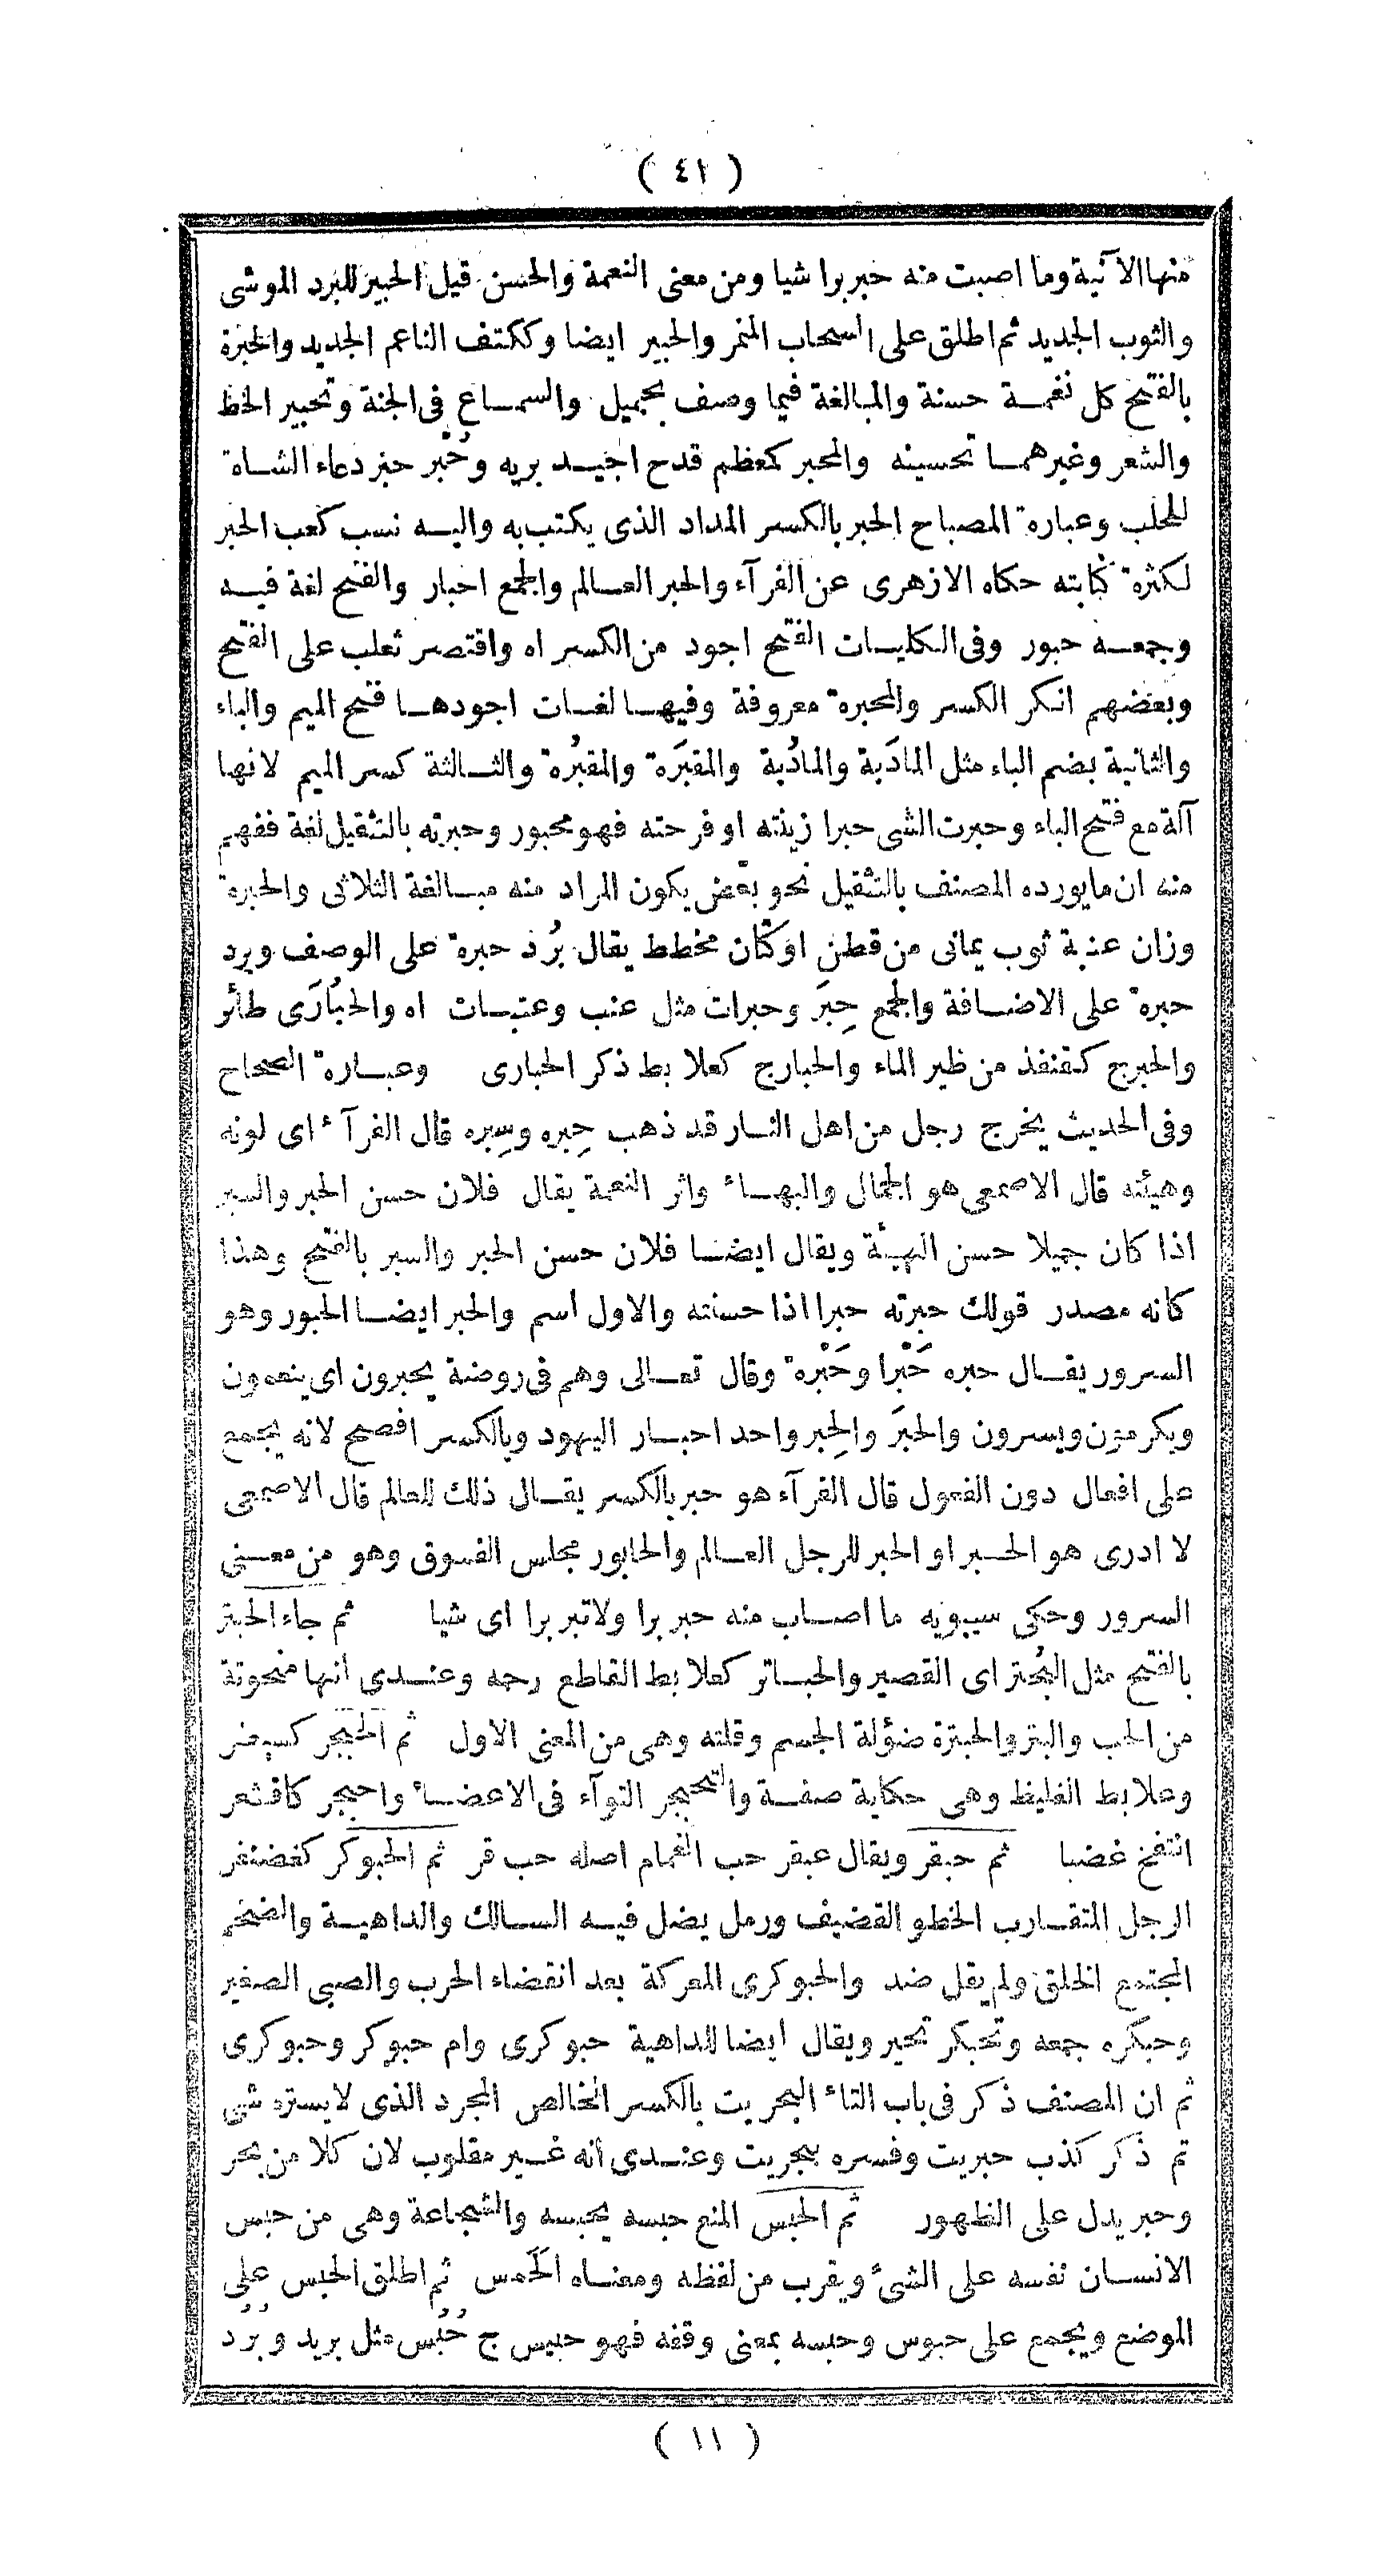 ( ٤١ )
منها الآنية وما اصبت منه حبربرا شيا ومن معنى النعمة والحسن قيل الحبير للبرد الموشى
والثوب الجديد ثم اطلق على السحاب المنمر والحبير ايضا وككتف الناعم الجديد والحبرة
بالفتح كل نغمة حسنة والمبالغة فيما وصف بجميل والسماع فى الجنة وتحبير الخط
والشعر وغيرهما تحسينه والمحبر كمعظم قدح اجيد بريه وحُبر حبر دعاء الشاة
للحلب وعبارة المصباح الحبر بالكسر المداد الذى يكتب به واليه نسب كعب الحبر
لكثرة كتابته حكاه الازهرى عن الفرآء والحبر العالم والجمع احبار والفتح لغة فيه
وجمعه حبور وفى الكليات الفتح اجود من الكسر اه واقتصر ثعلب على الفتح
وبعضهم انكر الكسر والمحبرة معروفة وفيها لغات اجودها فتح الميم والباء
والثانية بضم الباء مثل المادَبة والمادُبة والمقبَرة والمقبُرة والثالثة كسر الميم لانها
آلة مع فتح الباء وحبرت الشى حبرا زينته او فرحته فهو محبور وحبرته بالتثقيل لغة ففهم
منه ان ما يورده المصنف بالتثقيل نحو بعّض يكون المراد منه مبالغة الثلاثى والحبرة
وزان عنبة ثوب يمانى من قطن او كتّان مخطط يقال بُرد حبرة على الوصف وبرد
حبرة على الاضافة والجمع حِبَر وحبرات مثل عنب وعنبات اه والحُبارَى طائر
والحبرج كقنفذ من طير الماء والحبارج كعلابط ذكر الحبارى وعبارة الصحاح
وفى الحديث يخرج رجل من اهل النار قد ذهب حِبره وسِبره قال الفرآء اى لونه
وهيئته قال الاصمعى هو الجمال والبهاء واثر النعمة يقال فلان حسن الحبر والسبر
اذا كان جميلا حسن الهيأة ويقال ايضا فلان حسن الحبر والسبر بالفتح وهذا
كانه مصدر قولك حبرته حبرا اذا حسنته والاول اسم والحبر ايضا الحبور وهو
السرور يقال حبره حَبْرا وحَبْرة وقال تعالى وهم فى روضة يحبرون اى ينعمون
ويكرمون ويسرون والحَبر والحِبر واحد احبار اليهود وبالكسر افصح لانه يجمع
على افعال دون الفعول قال الفرآء هو حبر بالكسر يقال ذلك للعالم قال الاصمعى
لا ادرى هو الحبر او الحبر للرجل العالم والحابور مجلس الفسوق وهو من معنى
السرور وحكى سيبويه ما اصاب منه حبربرا ولا تبربرا اى شيا ثم جاء الحبتر
بالفتح مثل البُحتر اى القصير والحباتر كعلابط القاطع رحمه وعندى انها منحوتة
من الحب والبتر والحبترة ضؤلة الجسم وقلته وهى من المعنى الاول ثم الحبجر كسبطر
وعلابط الغليظ وهى حكاية صفة والتحبجر التوآء فى الاعضاء واحبجر كاقشعر
انتفخ غضبا ثم حبقر ويقال عبقر حب الغمام اصله حب قر ثم الحبوكر كغضنفر
الرجل المتقارب الخطو القضيف ورمل يضل فيه السالك والداهية والضخم
المجتمع الخلق ولم يقل ضد والحبوكرى المعركة بعد انقضاء الحرب والصبى الصغير
وحبكره جمعه وتحبكر تحير ويقال ايضا للداهية حبوكرى وام حبوكر وحبوكرى
ثم ان المصنف ذكر فى باب التاء البحريت بالكسر الخالص المجرد الذى لا يستره شى
ثم ذكر كذب حبريت وفسره ببحريت وعندى انه غير مقلوب لان كلا من بحر
وحبر يدل على الظهور ثم الحبس المنع حبسه يحبسه والشجاعة وهى من حبس
الانسان نفسه على الشئ ويقرب من لفظه ومعناه الحَمس ثم اطلق الحبس على
الموضع ويجمع على حبوس وحبسه بمعنى وقفه فهو حبيس ج حُبُس مثل بريد وبُرُد
( ١١ )